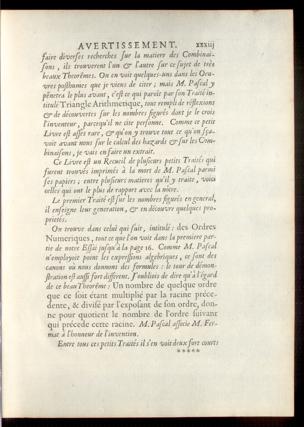 AVERTISSEMENT. xxxiij
faire diverses recherches sur la matiere des Combinai-
sons, ils trouverent l'un & l'autre sur ce sujet de très
beaux Theorêmes. On en voit quelques-uns dans les Oeu-
vres posthumes que je viens de citer; mais M. Pascal y
pénetra le plus avant, c'est ce qui paroît par son Traité in-
titulé Triangle Arithmetique, tout rempli de réflexions
& de découvertes sur les nombres figurés dont je le crois
l'inventeur, parcequ'il ne cite personne. Comme ce petit
Livre est assés rare, & qu'on y trouve tout ce qu'on sça-
voit avant nous sur le calcul des hazards & sur les Com-
binaisons, je vais en faire un extrait.
Ce Livre est un Recueil de plusieurs petits Traités qui
furent trouvés imprimés à la mort de M. Pascal parmi
ses papiers; entre plusieurs matieres qu'il y traite, voici
celles qui ont le plus de rapport avec la nôtre.
Le premier Traité est sur les nombres figurés en general,
il enseigne leur generation, & en découvre quelques pro-
prietés.
On trouve dans celui qui suit, intitulé: des Ordres
Numeriques, tout ce que l'on voit dans la premiere par-
tie de notre Essai jusqu'à la page 16. Comme M. Pascal
n'employoit point les expressions algebriques, ce sont des
canons où nous donnons des formules: le tour de démon-
stration est aussi fort different. J'oubliois de dire qu'à l'égard
de ce beau Theorême: Un nombre de quelque ordre
que ce soit étant multiplié par la racine préce-
dente, & divisé par l'exposant de son ordre, don-
ne pour quotient le nombre de l'ordre suivant
qui précede cette racine. M. Pascal associe M. Fer-
mat à l'honneur de l'invention.
Entre tous ces petits Traités il s'en voit deux fort courts
*****